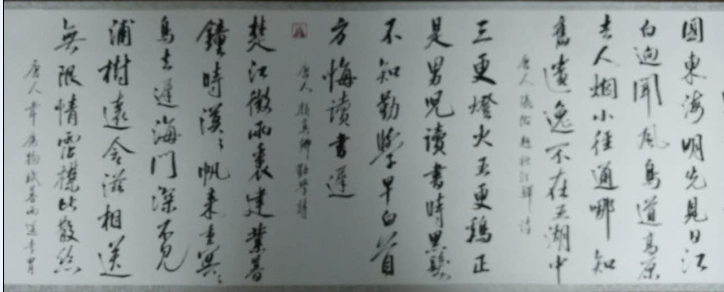 國東海明先見日江
白迥聞風鳥道高原
去人烟小徑通哪知
舊遺逸不在五湖中
唐人張祜題松汀驛詩
三更燈火五更鷄正
是男兒讀書時黑髮
不知勤學早白首
方悔讀書遲
唐人顏真卿勸學詩
楚江微雨裏建業暮
鐘時漠〻帆來重冥〻
鳥去遲海門深不見
浦樹遠含滋相送
無限情霑襟比散絲
唐人韋應物賦暮雨送李胄